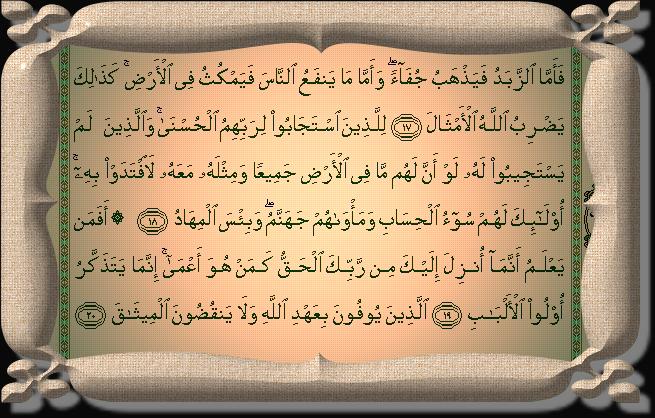 فَأَمَّا ٱلزَّبَدُ فَيَذْهَبُ جُفَآءًۖ وَأَمَّا مَا يَنفَعُ ٱلنَّاسَ فَيَمْكُثُ فِى ٱلْأَرْضِۚ كَذَٰلِكَ
يَضْرِبُ ٱللَّهُ ٱلْأَمْثَالَ ١٧ لِلَّذِينَ ٱسْتَجَابُوا۟ لِرَبِّهِمُ ٱلْحُسْنَىٰۚ وَٱلَّذِينَ لَمْ
يَسْتَجِيبُوا۟ لَهُۥ لَوْ أَنَّ لَهُم مَّا فِى ٱلْأَرْضِ جَمِيعًا وَمِثْلَهُۥ مَعَهُۥ لَٱفْتَدَوْا۟ بِهِۦٓۚ
أُو۟لَٰٓئِكَ لَهُمْ سُوٓءُ ٱلْحِسَابِ وَمَأْوَىٰهُمْ جَهَنَّمُۖ وَبِئْسَ ٱلْمِهَادُ ١٨ ۞ أَفَمَن
يَعْلَمُ أَنَّمَآ أُنزِلَ إِلَيْكَ مِن رَّبِّكَ ٱلْحَقُّ كَمَنْ هُوَ أَعْمَىٰٓۚ إِنَّمَا يَتَذَكَّرُ
أُو۟لُوا۟ ٱلْأَلْبَٰبِ ١٩ ٱلَّذِينَ يُوفُونَ بِعَهْدِ ٱللَّهِ وَلَا يَنقُضُونَ ٱلْمِيثَٰقَ ٢٠